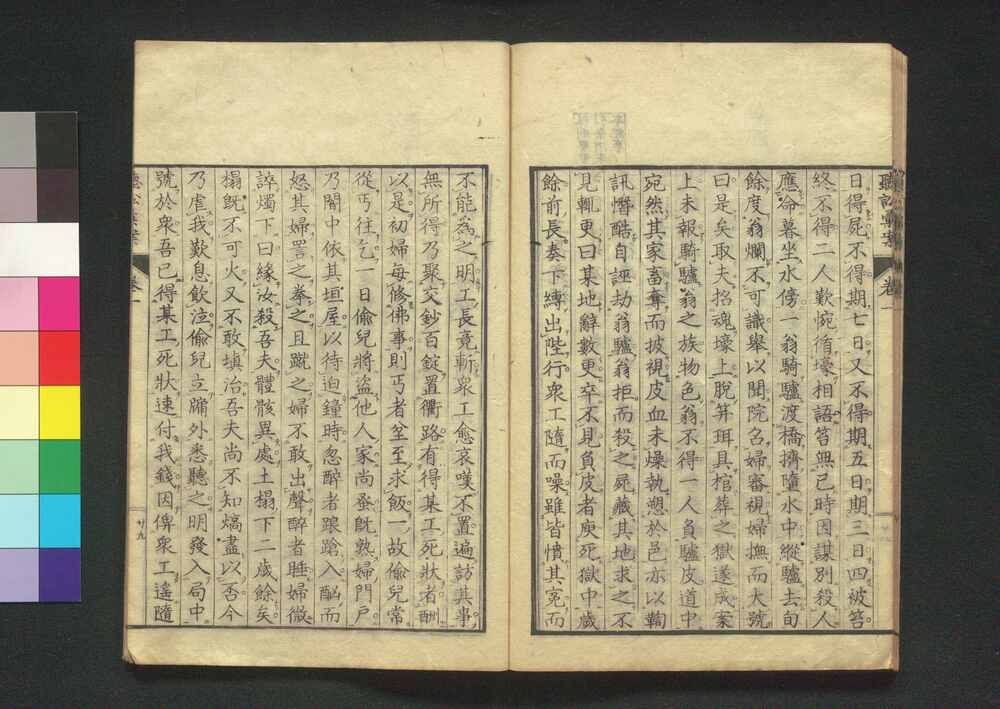 聽訟彙案 卷一
日得屍不得期七日又不得期五日期三日四被笞
終不得二人歎惋循壕相語笞無已時因謀別殺人
應命暮坐水傍一翁騎驢渡橋擠墮水中縱驢去旬
餘度翁爛不可識舉以聞院召婦審視婦撫而大號
曰是矣取夫招魂壕上脫笄珥具棺葬之獄遂成案
上未報騎驢翁之族物色翁不得一人負驢皮道中
宛然其家畜奪而披視皮血未燥執愬於邑亦以鞫
訊憯酷自誣劫翁驢翁拒而殺之屍藏其地求之不
見輒更曰某地辭數更卒不見負皮者庾死獄中歲
餘前長奏下縛出陛行衆工隨而噪雖皆憤其冤而
不能為之明工長竟斬衆工愈哀嘆不置遍訪其事
無所得乃聚交鈔百錠置衢路有得某工死狀者酬
以是初婦每修佛事則丐者坌至求飯一故偷兒常
從丐往乞一日偷兒將盜他人家尚蚤旣熟婦門戶
乃闇中依其垣屋以待迫鐘時忽醉者踉蹌入酗而
怒其婦詈之拳之且蹴之婦不敢出聲醉者睡婦微
誶燭下曰緣汝殺吾夫體骸異處土榻下二歲餘矣
榻旣不可火又不敢塡治吾夫尚不知熇盡以否今
乃虐我歎息飲泣偷兒立牖外悉聽之明發入局中
號於衆吾已得某工死狀速付我錢因俾衆工遙隨
聽訟彙案 卷一
廿九